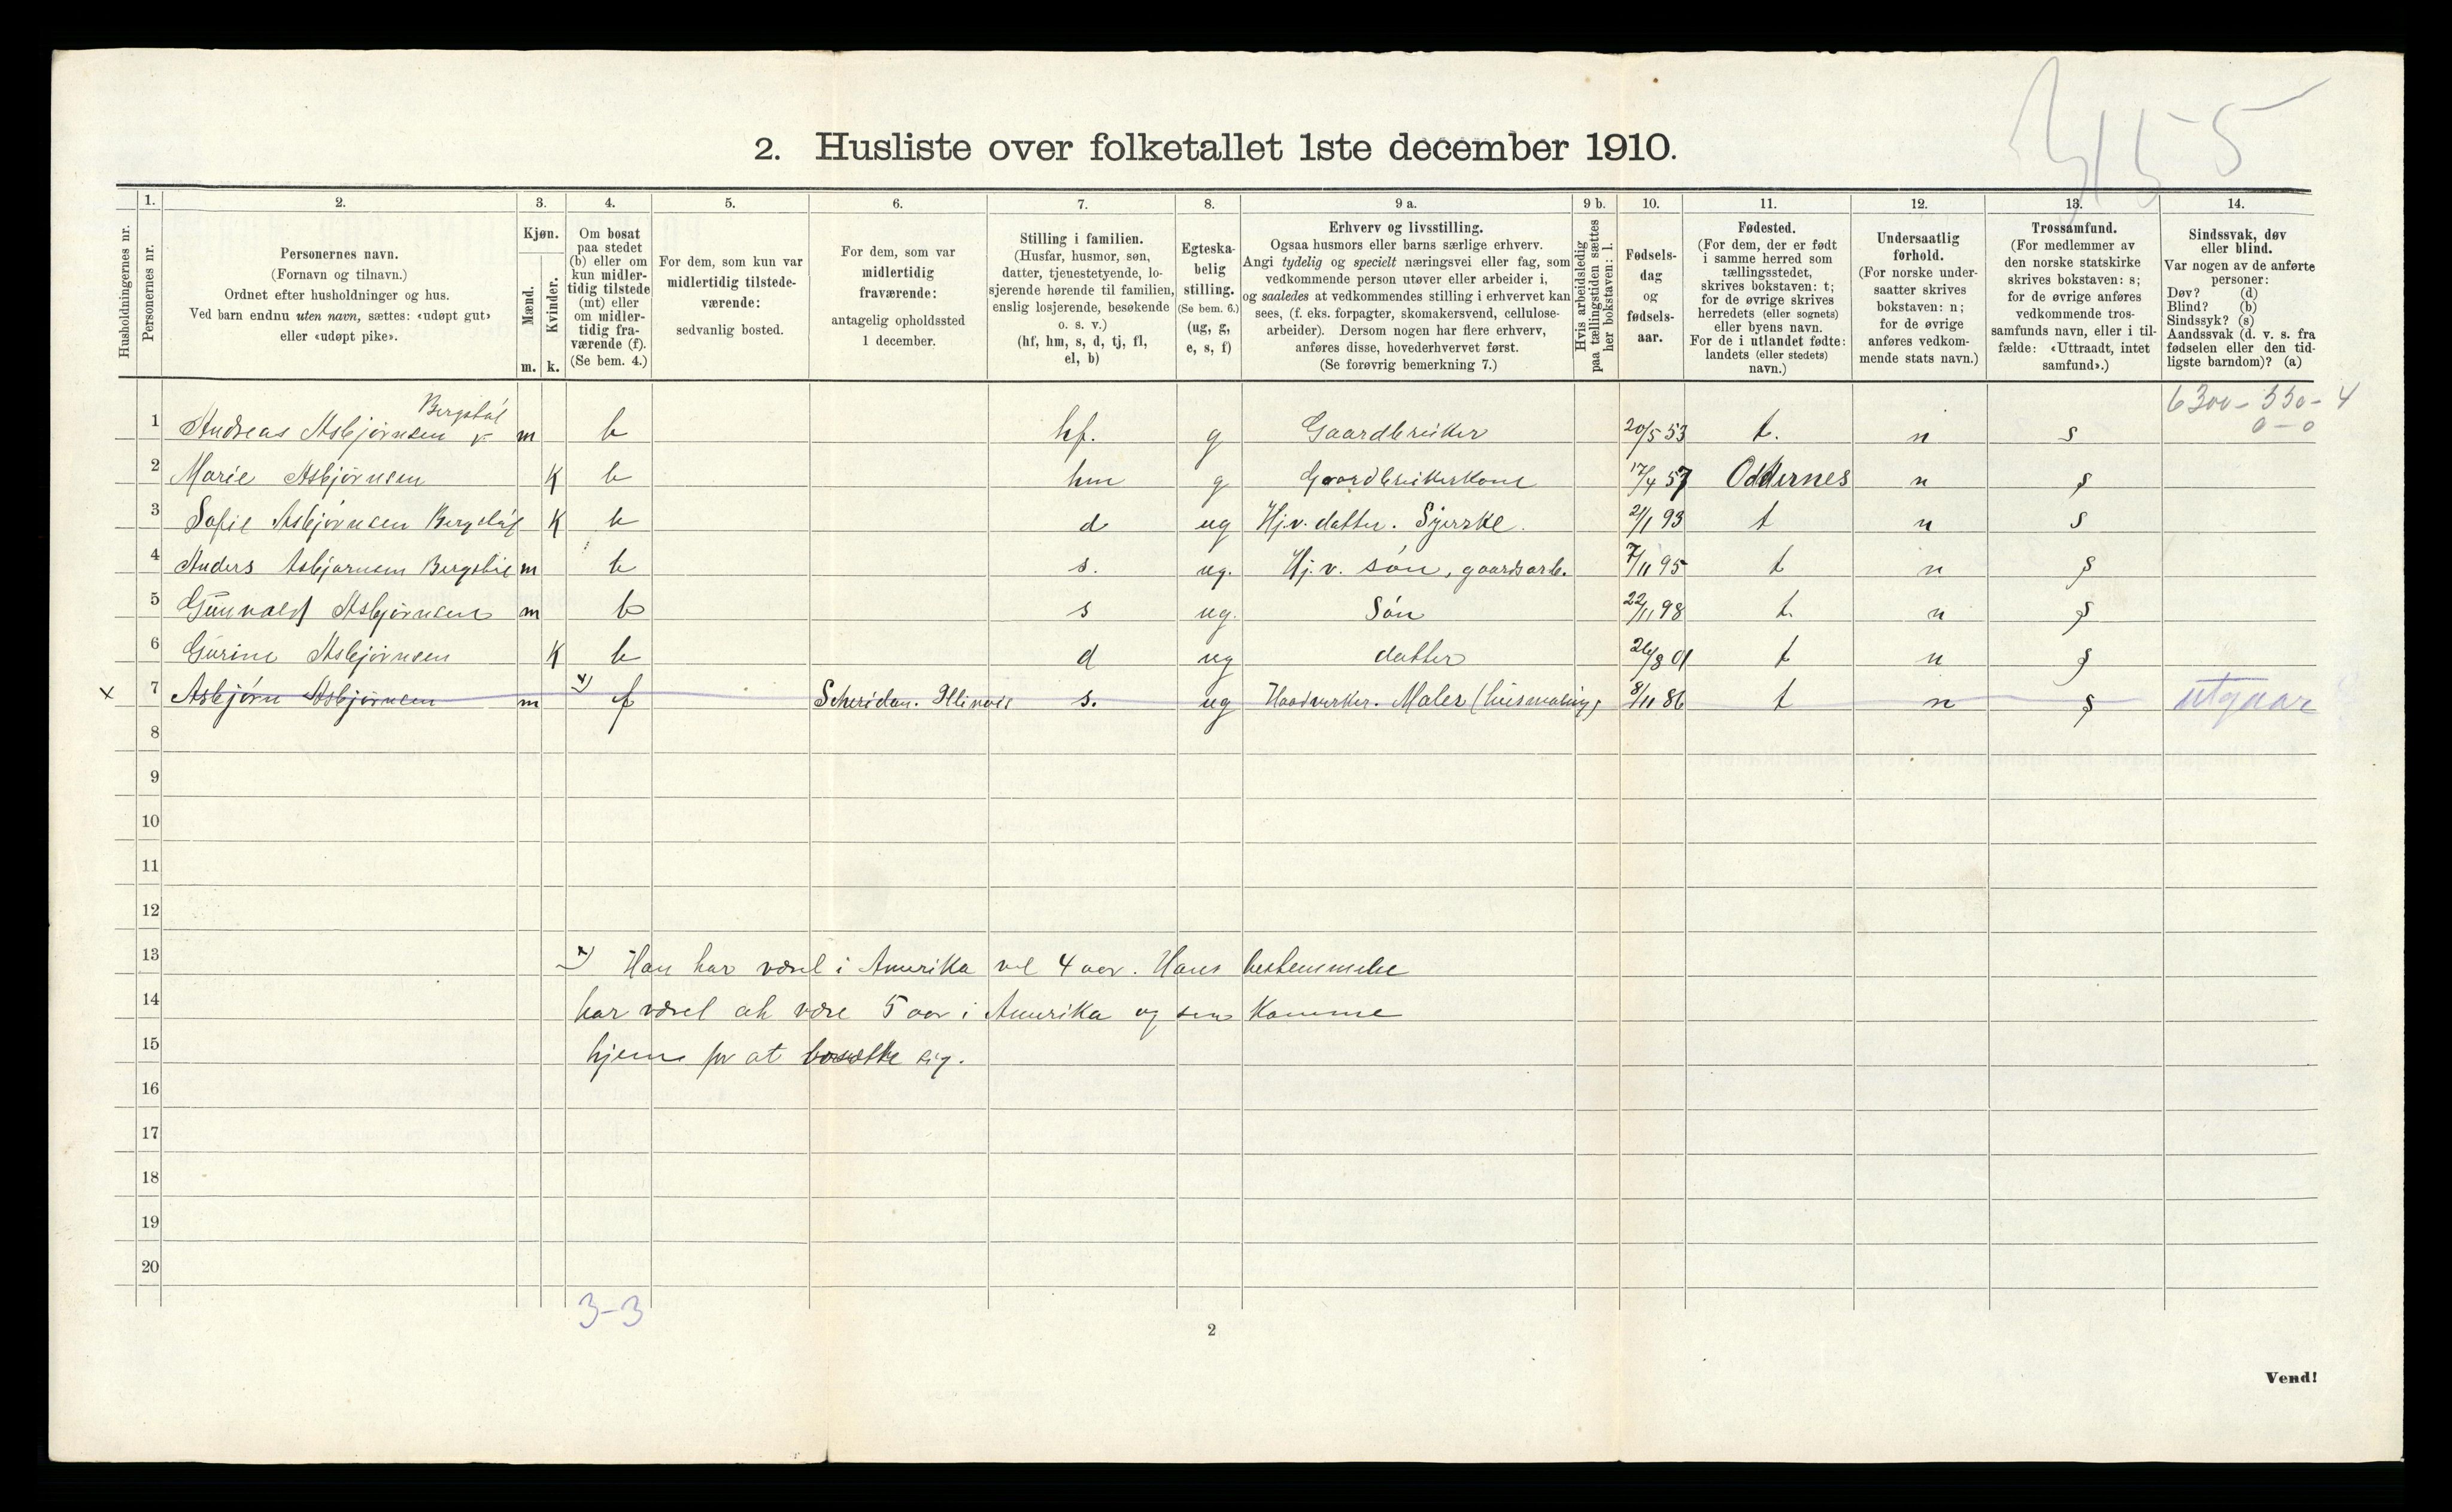 3155
2. Husliste over folketallet 1ste december 1910.
Husholdningernes nr.
1.
Personernes nr.
2.
Personernes navn.
(Fornavn og tilnavn.)
Ordnet efter husholdninger og hus.
Ved barn endnu uten navn, sættes: «udøpt gut»
eller «udøpt pike».
3.
Kjøn.
Mænd.
Kvinder.
m. k.
4.
Om bosat
paa stedet
(b) eller om
kun midler-
tidig tilstede
(mt) eller
om midler-
tidig fra-
værende (f).
(Se bem. 4.)
5.
For dem, som kun var
midlertidig tilstede-
værende:
sedvanlig bosted.
6.
For dem, som var
midlertidig
fraværende:
antagelig opholdssted
1 december.
7.
Stilling i familien.
(Husfar, husmor, søn,
datter, tjenestetyende, lo-
sjerende hørende til familien,
enslig losjerende, besøkende
o. s. v.)
(hf, hm, s, d, tj, fl,
el, b)
8.
Egteska-
belig
stilling.
(Se bem. 6.)
(ug, g,
e, s, f)
9 a.
Erhverv og livsstilling.
Ogsaa husmors eller barns særlige erhverv.
Angi tydelig og specielt næringsvei eller fag, som
vedkommende person utøver eller arbeider i,
og saaledes at vedkommendes stilling i erhvervet kan
sees, (f. eks. forpagter, skomakersvend, cellulose-
arbeider). Dersom nogen har flere erhverv,
anføres disse, hovederhvervet først.
(Se forøvrig bemerkning 7.)
9 b.
Hvis arbeidsledig
paa tællingstiden sættes
her bokstaven: l.
10.
Fødsels-
dag
og
fødsels-
aar.
11.
Fødested.
(For dem, der er født
i samme herred som
tællingsstedet,
skrives bokstaven: t;
for de øvrige skrives
herredets (eller sognets)
eller byens navn.
For de i utlandet fødte:
landets (eller stedets)
navn.)
12.
Undersaatlig
forhold.
(For norske under-
saatter skrives
bokstaven: n;
for de øvrige
anføres vedkom-
mende stats navn.)
13.
Trossamfund.
(For medlemmer av
den norske statskirke
skrives bokstaven: s;
for de øvrige anføres
vedkommende tros-
samfunds navn, eller i til-
fælde: «Uttraadt, intet
samfund».)
14.
Sindssvak, døv
eller blind.
Var nogen av de anførte
personer:
Døv? (d)
Blind? (b)
Sindssyk? (s)
Aandssvak (d. v. s. fra
fødselen eller den tid-
ligste barndom)? (a)
6300 - 550 - 4
0 - 0
Bergstøl
1 Andreas Asbjørnsen m b hf. g Gaardbruker 20/5 53 t. n s
2 Marie Asbjørnsen K b hm g Gaardbrukerkone 17/4 57 Oddernes n s
3 Sofie Asbjørnsen Bergstøl K b d ug Hj.v. datter. Syerske. 21/1 93 t n s
4 Anders Asbjørnsen Bergstøl m b s. ug. Hj. v. søn, gaardsarb. 7/11 95 t n s
5 Gunvald Asbjørnsen m b s ug. Søn 22/11 98 t. n s
6 Gurine Asbjørnsen K b d ug datter 26/8 01 t n s
x 7 Asbjørn Asbjørnsen m x) f Scheridan. Illinois s. ug Haadverker. Maler (husmaling) 8/11 86 t n s utgaar
8
9
10
11
12
13 x) Han har været i Amerika vel 4 aar. Hans bestemmelse
14 har været at være 5 aar i Amerika og saa komme
15 hjem for at bosætte sig.
16
17
18
19
20
3-3
2
Vend!